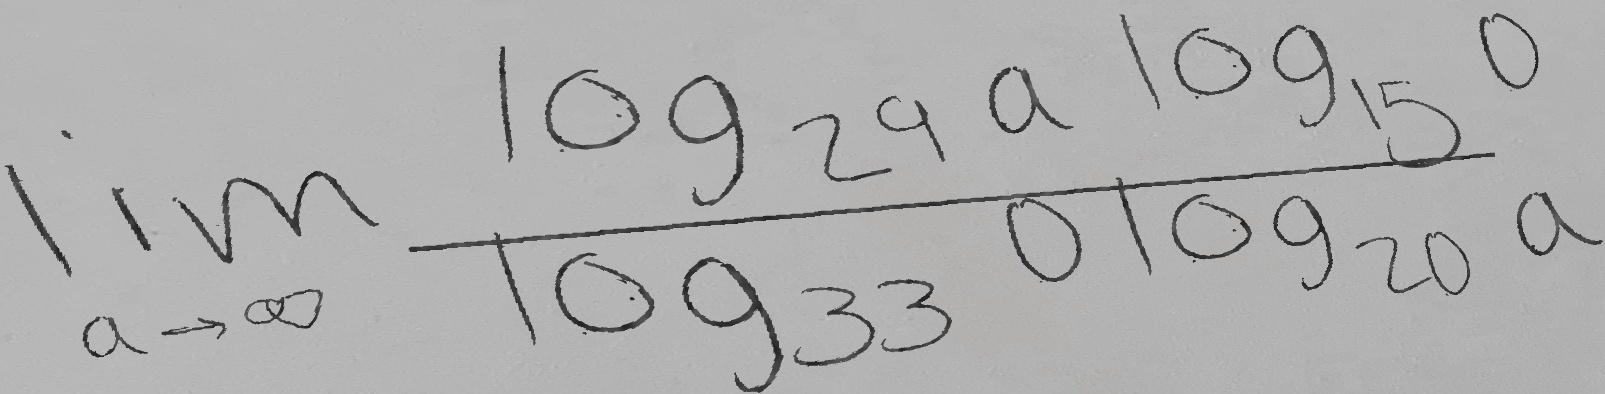 \lim_{a \to \infty} \frac{\log_{29} a \log_{15} 0}{\log_{33} 0 \log_{20} a}